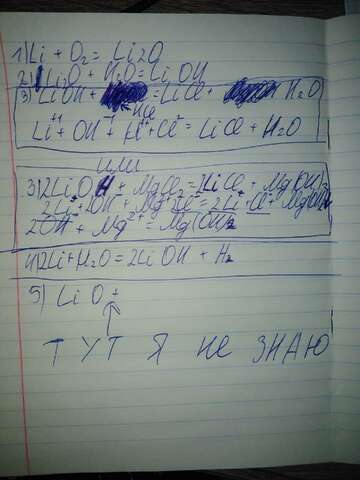 1) Li + O2 = Li2O
2) Li2O + H2O = LiOH
3) LiOH + = LiCl + H2O
HCl
Li+ + OH- + H+ + Cl- = LiCl + H2O
или
3) 2LiOH + MgCl2 = 2LiCl + Mg(OH)2
2OH + Mg2+ = Mg(OH)2
4) 2Li + H2O = 2LiOH + H2
5) LiO +
ТУТ Я НЕ ЗНАЮ